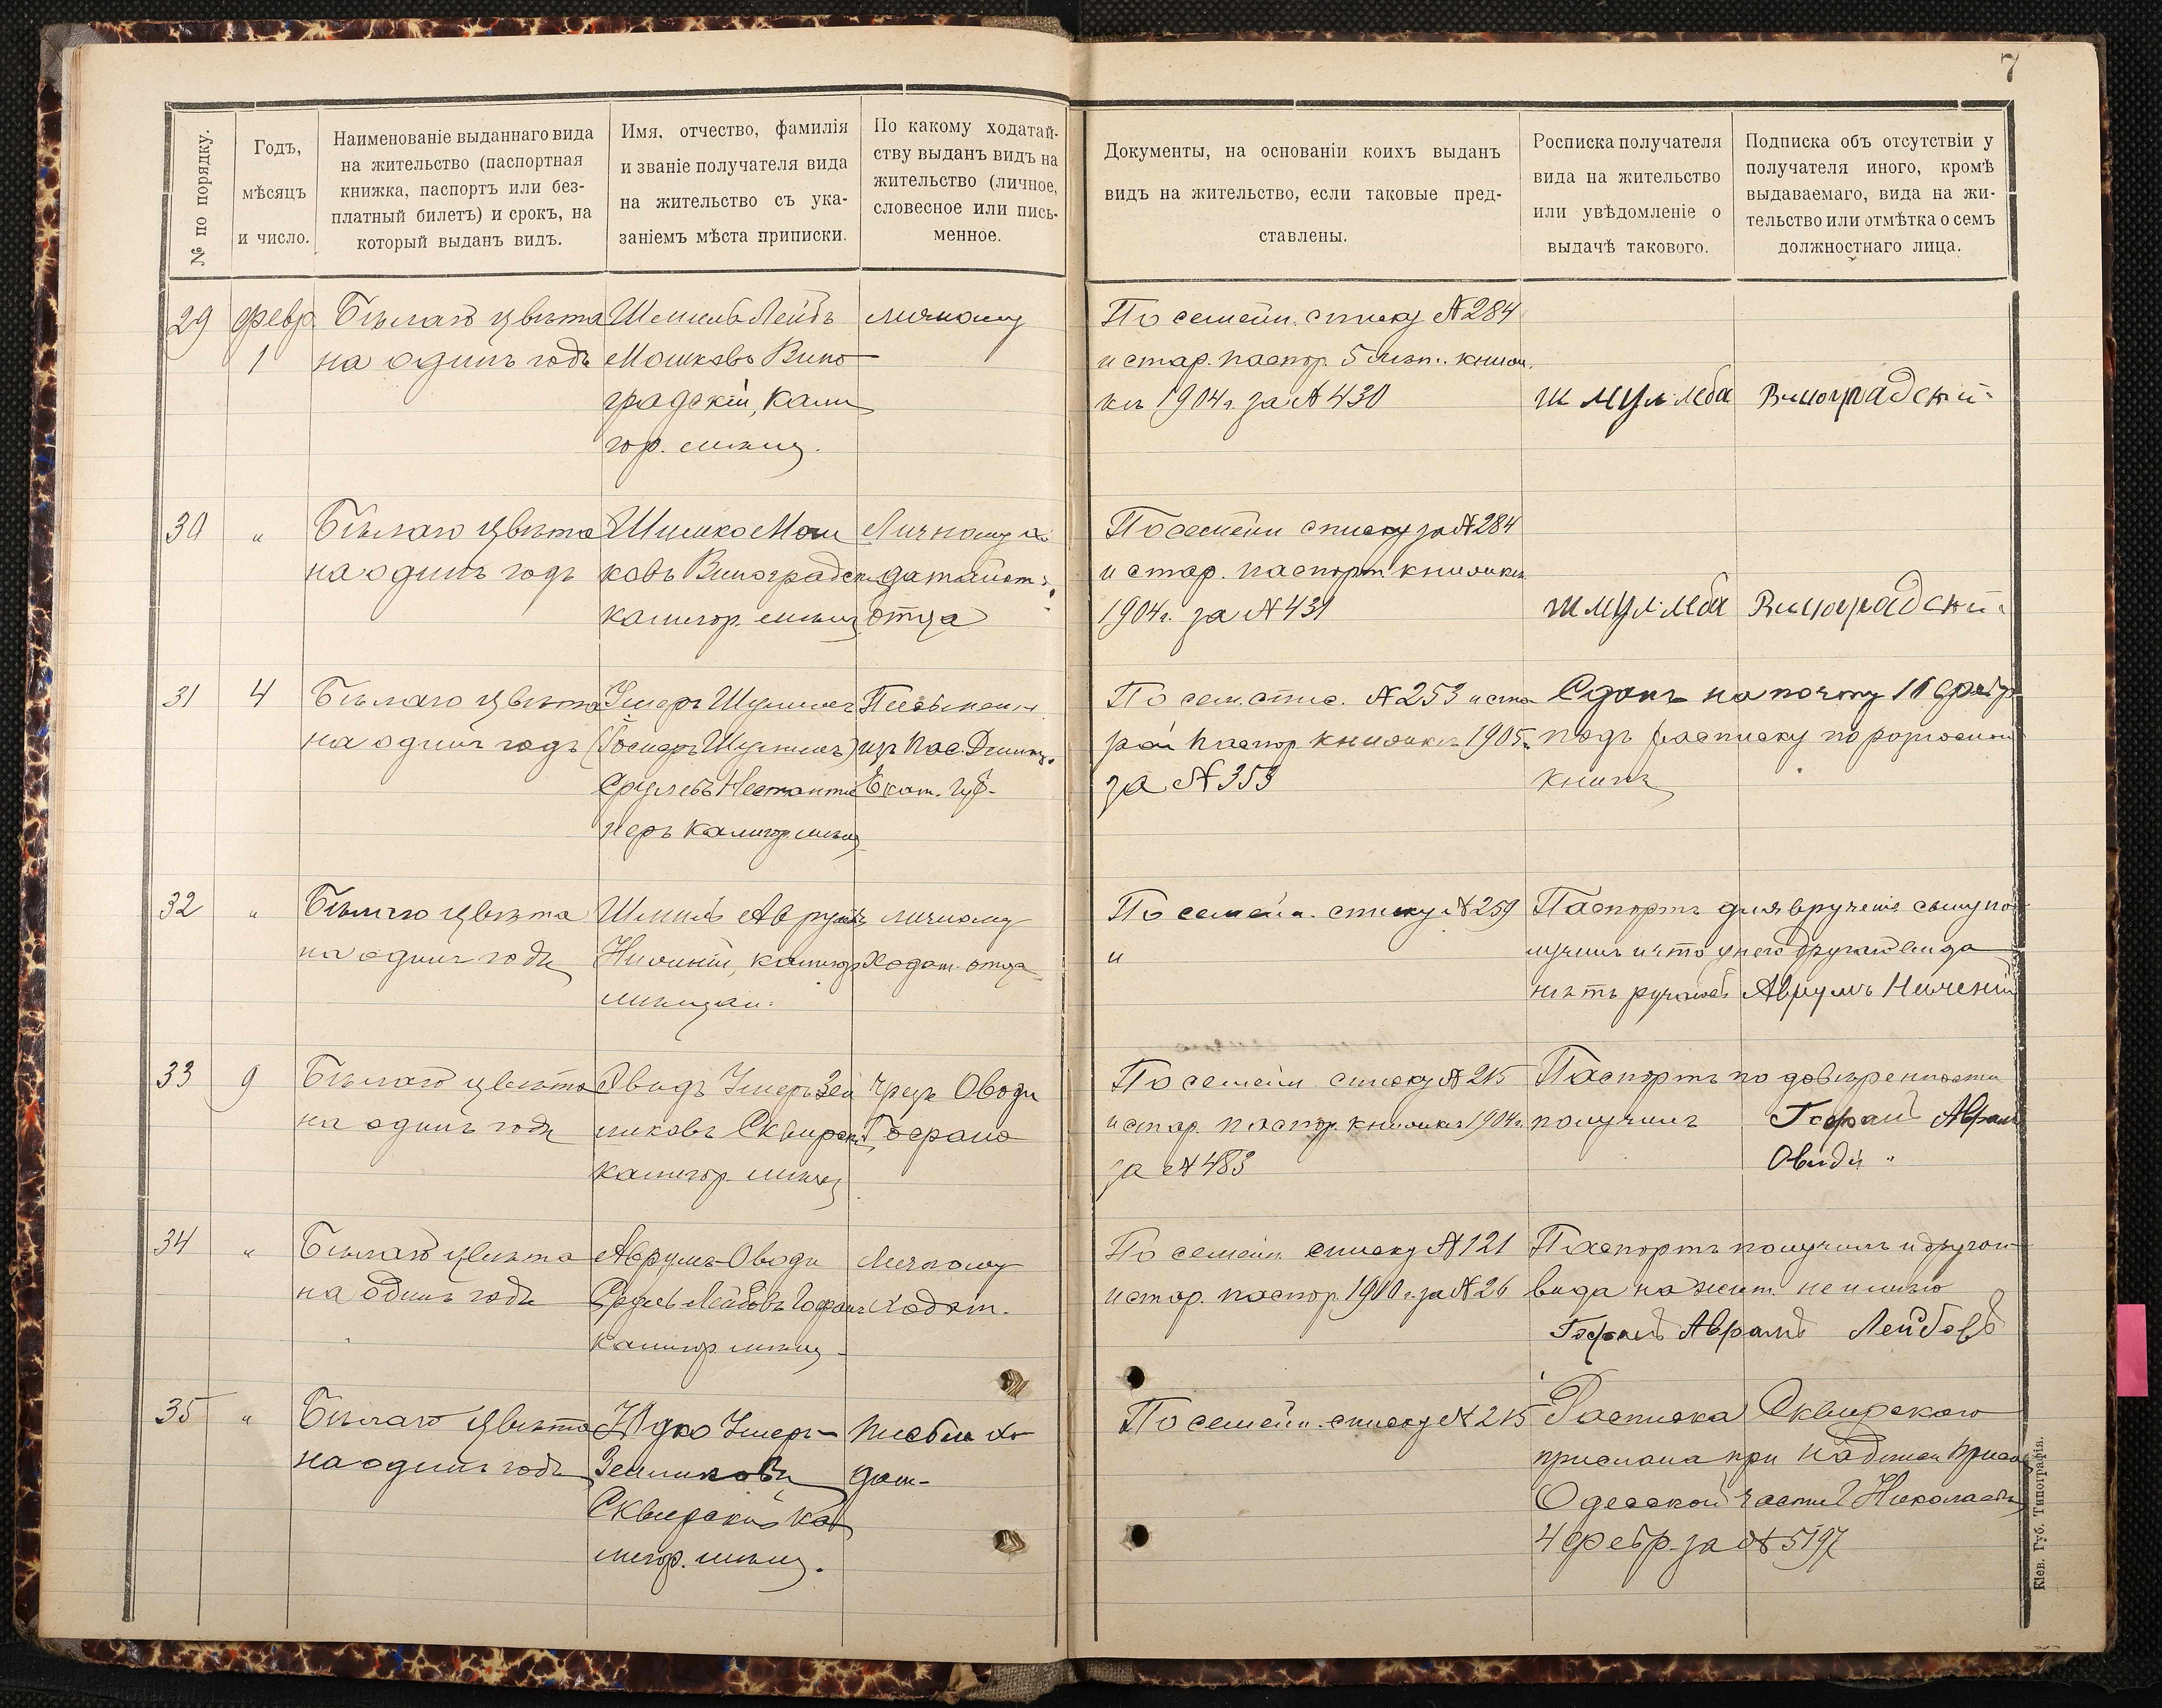 7
№ по порядку.
Годъ,
мѣсяцъ
и число.
Наименованіе выданнаго вида
на жительство (паспортная
книжка, паспортъ или без-
платный билетъ) и срокъ, на
который выданъ видъ.
Имя, отчество, фамилія
и званіе получателя вида
на жительство съ ука-
заніемъ мѣста приписки.
По какому ходатай-
ству выданъ видъ на
жительство (личное,
словесное или пись-
менное.
Документы, на основаніи коихъ выданъ
видъ на жительство, если таковые пред-
ставлены.
Росписка получателя
вида на жительство
или увѣдомленіе о
выдачѣ такового.
Подписка объ отсутствіи у
получателя иного, кромѣ
выдаваемаго, вида на жи-
тельство или отмѣтка о семъ
должностнаго лица.
29
февр.
1
Бѣлаго цвѣта
на одинъ годъ
Шмиль Лейбъ
Мошковъ Вино
градскій, Калн
гор. мѣщ.
личному
По семейн. списку № 284
и стар. паспор. 5 книж.
1904 г. за № 430
Шмул Леба Виноградский
30
"
Бѣлаго цвѣта
на одинъ годъ
Шимко Мош
ковъ Виноградск
калигор. мѣщ
Личному хо
датайст.
отца
По семейн списку за № 284
и стар. паспорт книжки
1904 г. за № 431
Шмул Леба Виноградский
31
4
Бѣлаго цвѣта
на одинъ годъ
Умеръ Шулимъ
Срулевъ
неръ калигор. мѣщ
Письменн.
изъ пос.
Екат. губ.
По сем. спис. № 253 и ста
рой паспор. книжки 1905 г.
за № 353
Сданъ на почту 11 февр
подъ расписку по разносной
книгѣ
32
"
Бѣлаго цвѣта
на одинъ годъ
Шмиль Аврумъ
калигор
мѣщан.
личному
Ходат. отца
По семейн. списку № 259
и
Паспортъ для врученія сыну по
лучилъ и что у него другого вида
нѣтъ ручаюсь Аврумъ
33
9
Бѣлаго цвѣта
на одинъ годъ
Овидъ Умеръ Зей
никовъ Сквирск
калигор. мѣщ
Чрезъ Оводи
Гофрано
По семейн списку № 215
и стар. паспор. книжки 1904 г.
за № 483
Паспортъ по довѣренности
получилъ Гофрай Аврам
Овиди "
34
"
Бѣлаго цвѣта
на одинъ годъ
Аврумъ-Оводи
Сруль Лейбовъ Гофранъ
калигор. мѣщ
Личному
ходат.
По семейн. списку № 121
и стар. паспор. 1900 г. за № 26
Паспортъ получилъ и другого
вида на жит. не имѣю
Гофранъ Аврамъ Лейбовъ
35
"
Бѣлаго цвѣта
на одинъ годъ
Юдко Умеръ-
Зейликовъ
Сквирскій ка
лигор. мѣщ.
Письм хо
дат.
По семейн. списку № 215
Расписка Сквирскаго
прислана при надписи Приста
Одесской части Николаева
4 февр. за № 5197
Кіев. Губ. Типографія.